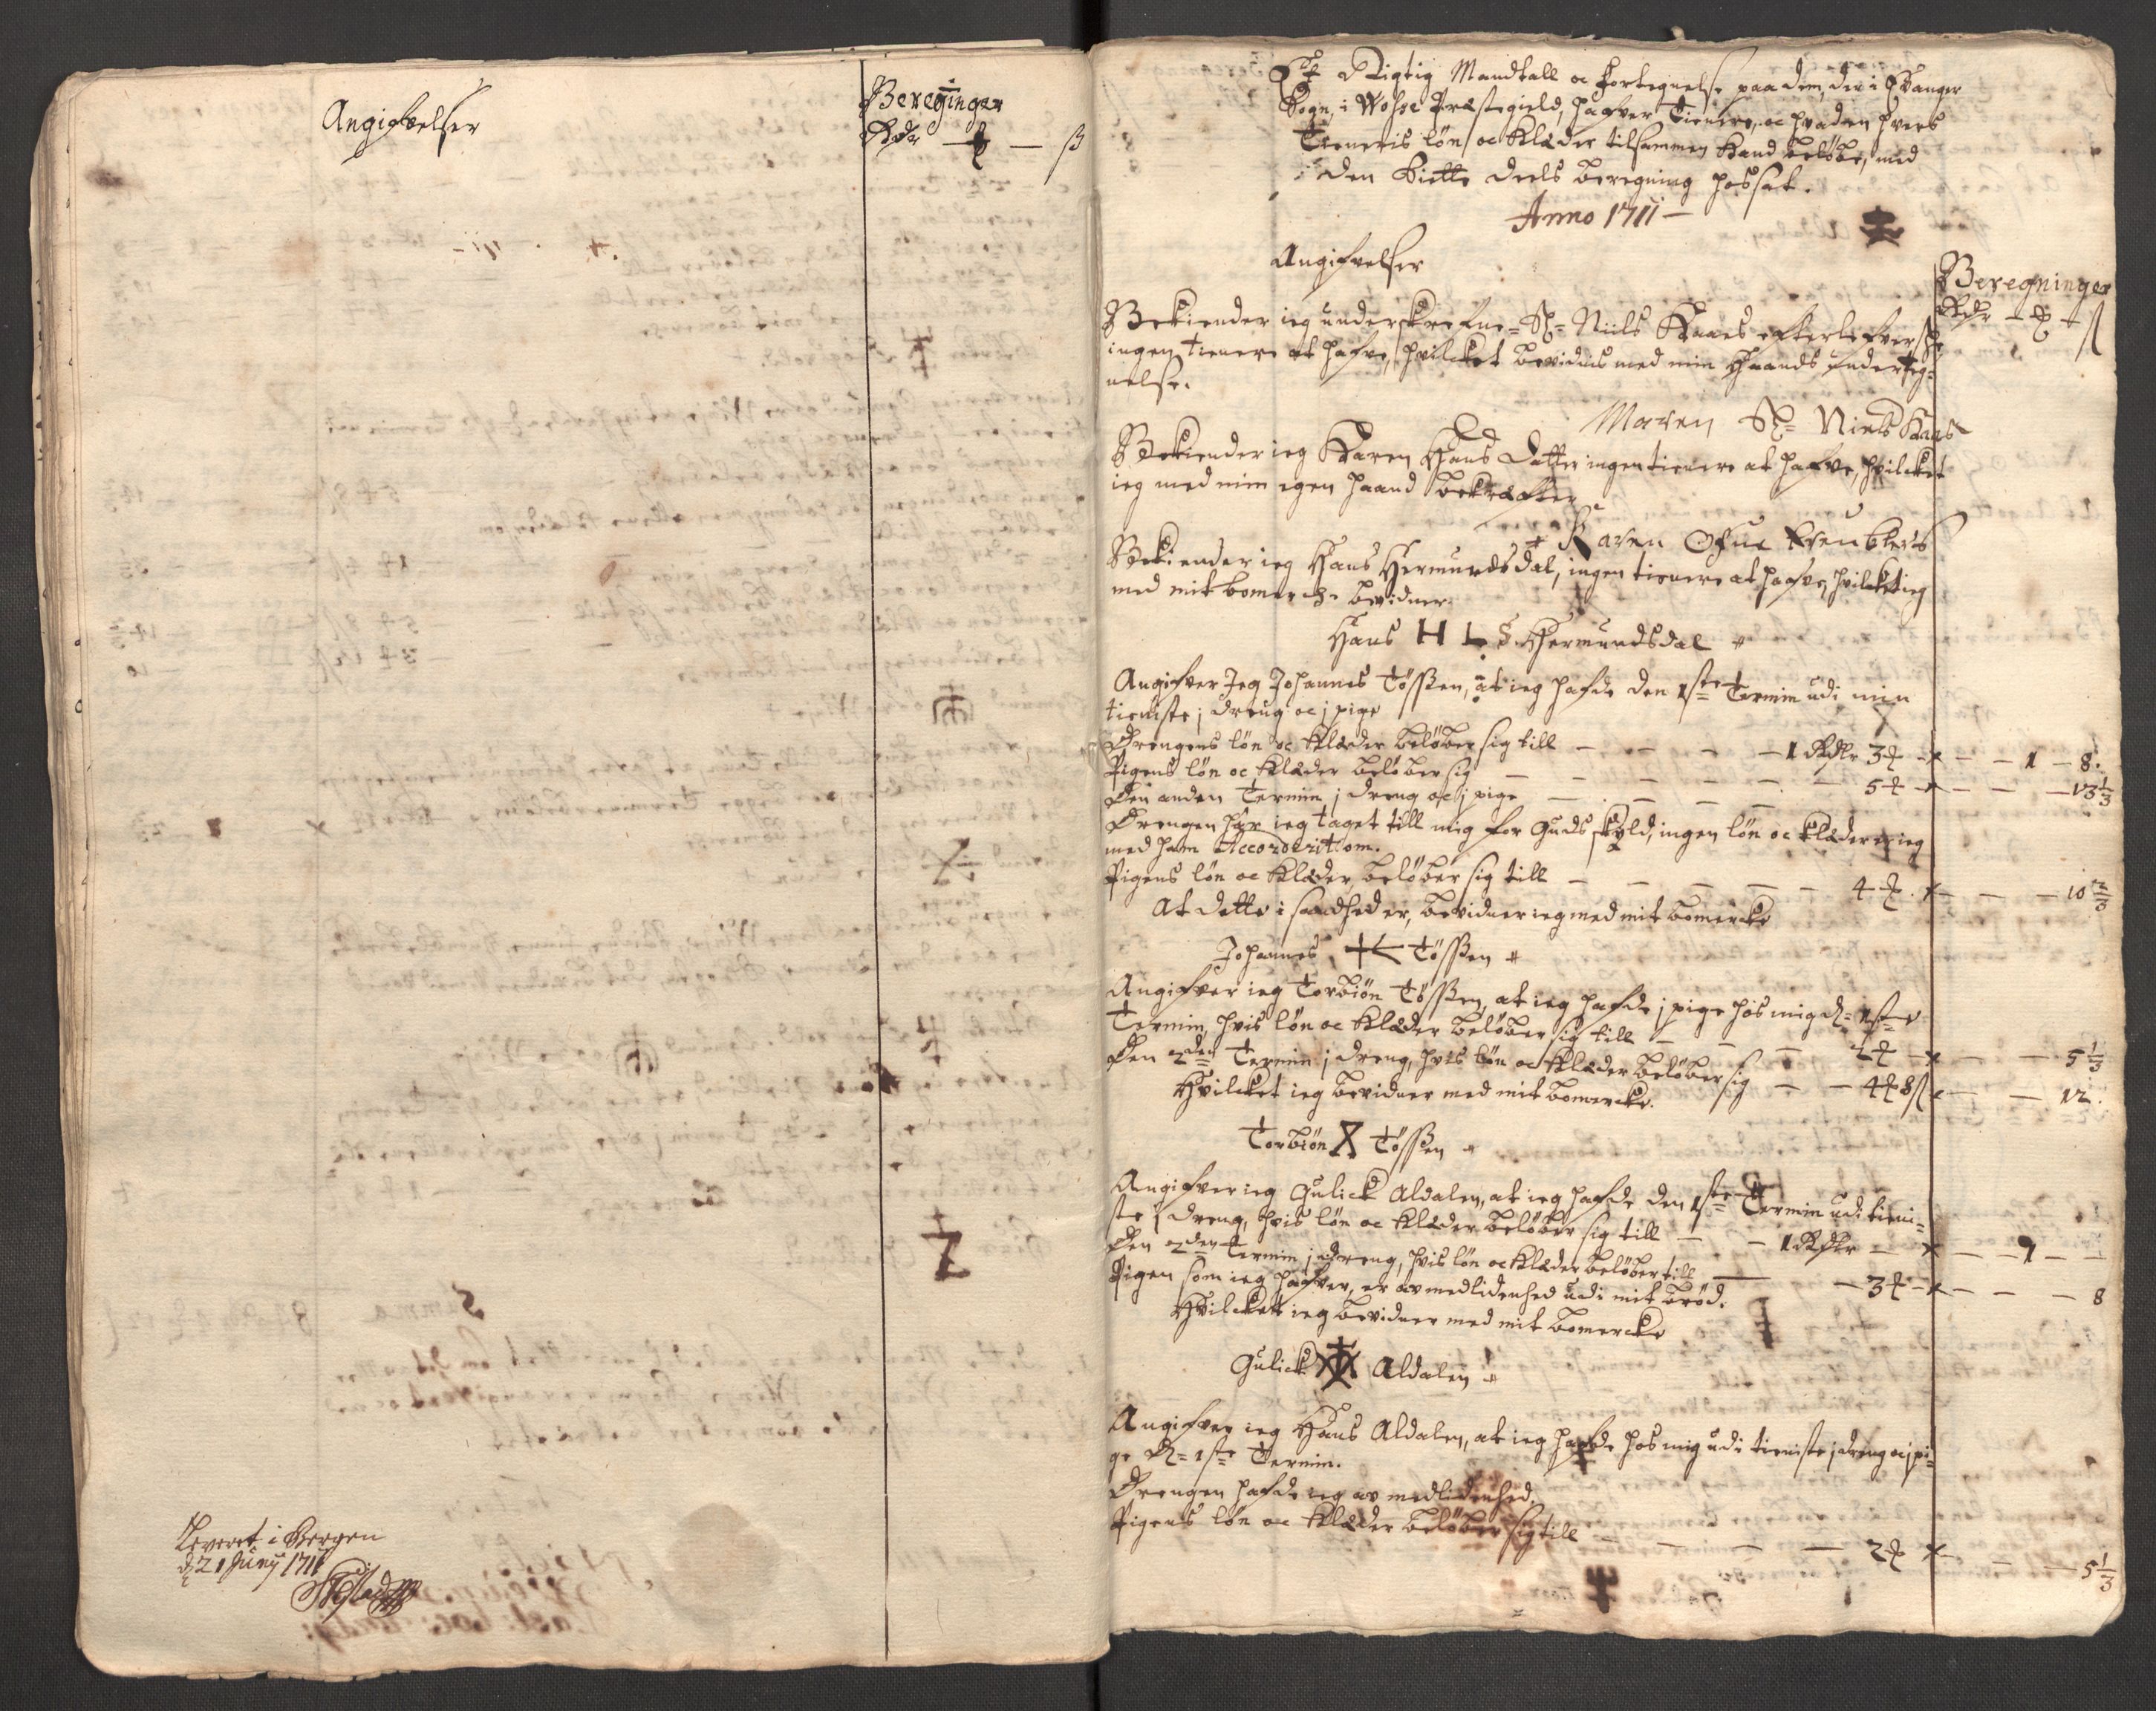 Angifvelser
Beregninger
Rdr — ℔ — ß
Leveret i Bergen
d 21 Juny 1711
Et Rigtig Mandtall oc Fortegnelse paa dem, der i Evanger
Sogn, i Wosse Præstegield, hafver Tienere, oc hvaden hvers
Tieneris løn oc Klæder tilsammen Kand beløbe, med
den siette deels beregning hossat.
Anno 1711 —
Angifvelser
Beregninger
Rdr — ℔ — ß
Bekiender ieg underskrefne Sl= Niils Kaaes efterlefverske
ingen tienere at hafve, hvilcket bevidnis med min Haands underteg=
nelse.
Maren Sl= Niels Kaas
Bekiender ieg Karen Hans Datter ingen tienere at hafve, hvilcket
ieg med min egen haand bekræfter
Karen
Bekiender ieg Hans Hermundsdal, ingen tienere at hafve, hvilcket ieg
med mit bomercke bevidner.
Hans H L S Hermundsdal
Angifver Jeg Johannes Tøssen, at ieg hafde den 1ste Termin udi min
tieniste j dreng oc j pige
Drengens løn oc Klæder beløber sig till — — — — 1 Rdlr 3 ℔ — x — — 1 — 8.
Pigens løn oc Klæder beløber sig — — — — — 5 ℔ — x — — — 13 1/3
Den anden Termin j dreng oc j pige — — — —
Drengen har ieg taget till mig for Guds skyld, ingen løn oc klæder er ieg
med ham Accorderit om.
Pigens løn oc Klæder, beløber sig till — — — — — 4 ℔. x — — — 10 2/3
At dette i sandhed er, bevidner ieg med mit bomercke
Johannes Tøssen
Angifver ieg Torbiøn Tøssen, at ieg hafde j pige hos mig d= 1ste
Termin, hvis løn oc Klæder beløber sig till — — — 2 ℔ — x — — 5 1/3
Den 2den Termin j dreng, hvis løn oc Klæder beløber sig — — 4 ℔ 8 ß x — — 12.
Hvilcket ieg bevidner med mit bomercke.
Torbiøn X Tøssen
Angifver ieg Gulick Aldalen, at ieg hafde den 1ste Termin udi tieni=
ste j dreng, hvis løn oc Klæder beløber sig till — — 1 Rdlr — x — — 1 — —
Den 2den Termin j dreng, hvis løn oc Klæder beløber till — — 3 ℔ — x — — — 8
Pigen som ieg hafver, er av medlidenhed udi mit brød.
Hvilcket ieg bevidner med mit bomercke
Gulick Aldalen
Angifver ieg Hans Aldalen, at ieg hafde hos mig udi tieniste j dreng oc j pi=
ge d= 1ste Termin.
Drengen hafde ieg av medlidenhed.
Pigens løn oc Klæder beløber sig till — — — — 2 ℔ x — — — 5 1/3